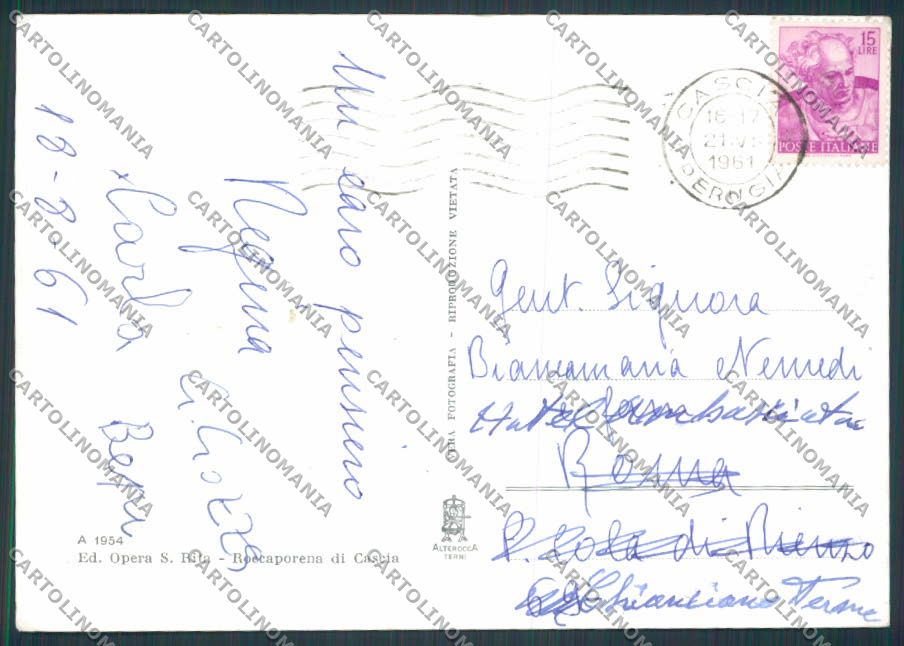 Un caro pensiero
Regina
Carla
Bepi
18-8-61
A 1954
Ed. Opera S. Rita - Roccaporena di Cascia
VERA FOTOGRAFIA - RIPRODUZIONE VIETATA
ALTEROCCA
TERNI
CASCIA
16-17
21.VI
1961
PERUGIA
15
LIRE
POSTE ITALIANE
Gent. Signora
Biancamaria Nemedi
Hotel
Roma
P. Cola di Rienzo
Chianciano Terme
CARTOLINOMANIA